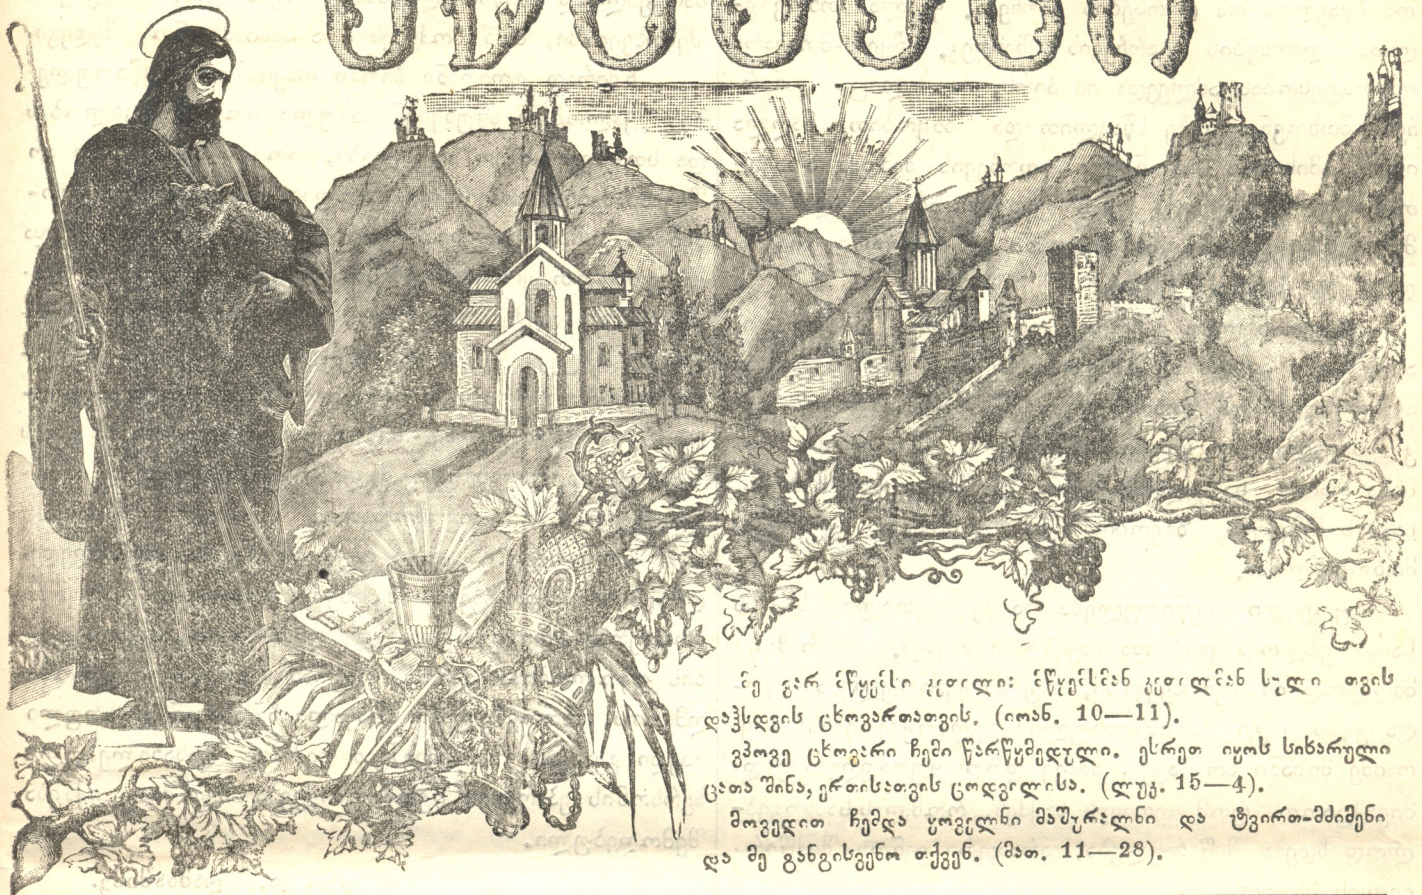 მე ვარ მწყემსი კეთილი: მწყემსმან კეთილმან სული თვის
დაჰსდვის ცხოვართათვის. (იოან. 10—11).
ვპოვე ცხოვარი ჩემი წარწყმედული. ესრეთ იყოს სიხარული
ცათა შინა, ერთისათვის ცოდვილისა. (ლუკ. 15—4).
მოვედით ჩემდა ყოველნი მაშვრალნი და ტვირთ-მძიმენი
და მე განგისვენო თქვენ. (მათ. 11—28).